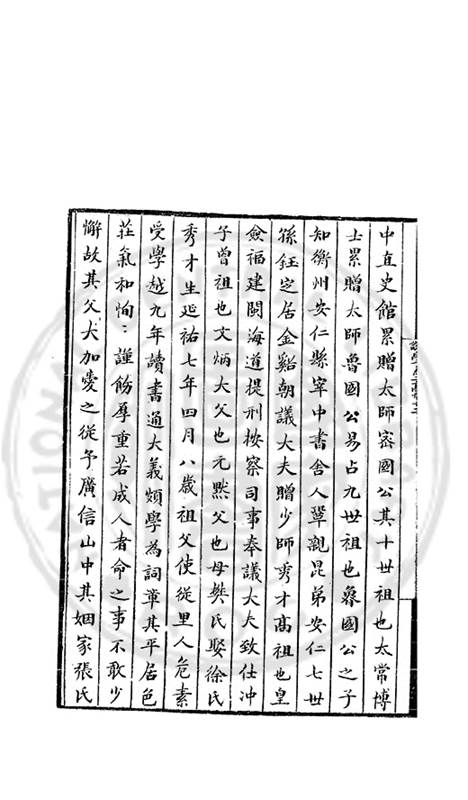 中直史館累贈太師密國公其十世祖也太常博
士累贈太師魯國公易占九世祖也魯國公之子
知衡州安仁縣宰中書舍人鞏覿昆弟安仁七世
孫鈺定居金谿朝議大夫贈少師秀才高祖也皇
僉福建閩海道提刑按察司事奉議大夫致仕冲
子曾祖也文炳大父也元默父也母樊氏娶徐氏
秀才生延祐七年四月八歲祖父使從里人危素
受學越九年讀書通大義頗學為詞章其平居色
莊氣和恂〻謹飭厚重若成人者命之事不敢少
懈故其父犬加愛之從予廣信山中其姻家張氏